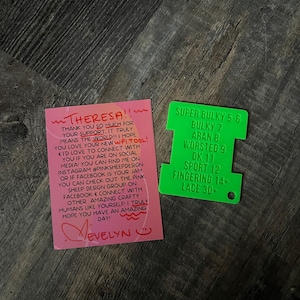 THERESA!!
THANK YOU SO MUCH FOR
YOUR SUPPORT. IT TRULY
MEANS THE WORLD!! I HOPE
YOU LOVE YOUR NEW WPI TOOL!
I'D LOVE TO CONNECT WITH
YOU IF YOU ARE ON SOCIAL
MEDIA! YOU CAN FIND ME ON
INSTAGRAM @PINKSHEEPDESIGN
OR IF FACEBOOK IS YOUR JAM
YOU CAN CHECK OUT THE PINK
SHEEP DESIGN GROUP ON
FACEBOOK & CONNECT WITH
OTHER AMAZING CRAFTY
HUMANS LIKE YOURSELF! I TRULY
HOPE YOU HAVE AN AMAZING
DAY!
EVELYN
SUPER BULKY 5-6
BULKY 7
ARAN 8
WORSTED 9
DK 11
SPORT 12
FINGERING 14+
LACE 30+